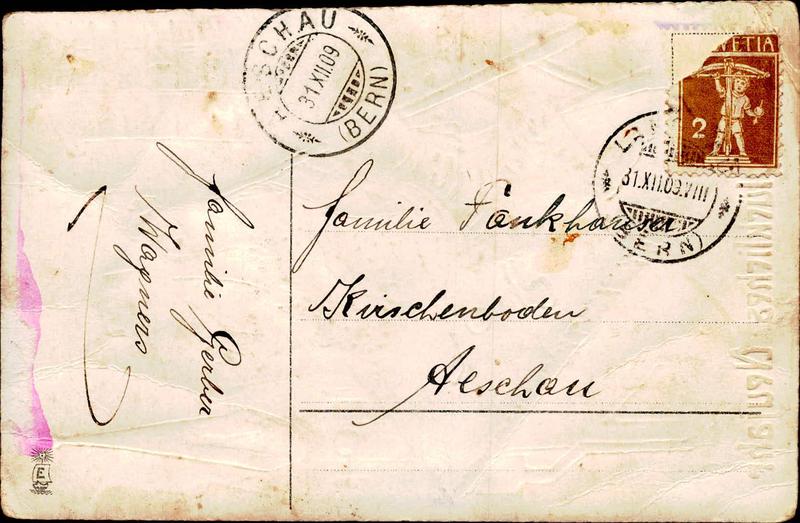 AESCHAU
31.XII.09
(BERN)
HELVETIA
2
31.XII.09.VIII
(BERN)
Familie Fankhauser
Kirschenboden
Aeschau
Familie Gerber
Wagners
E